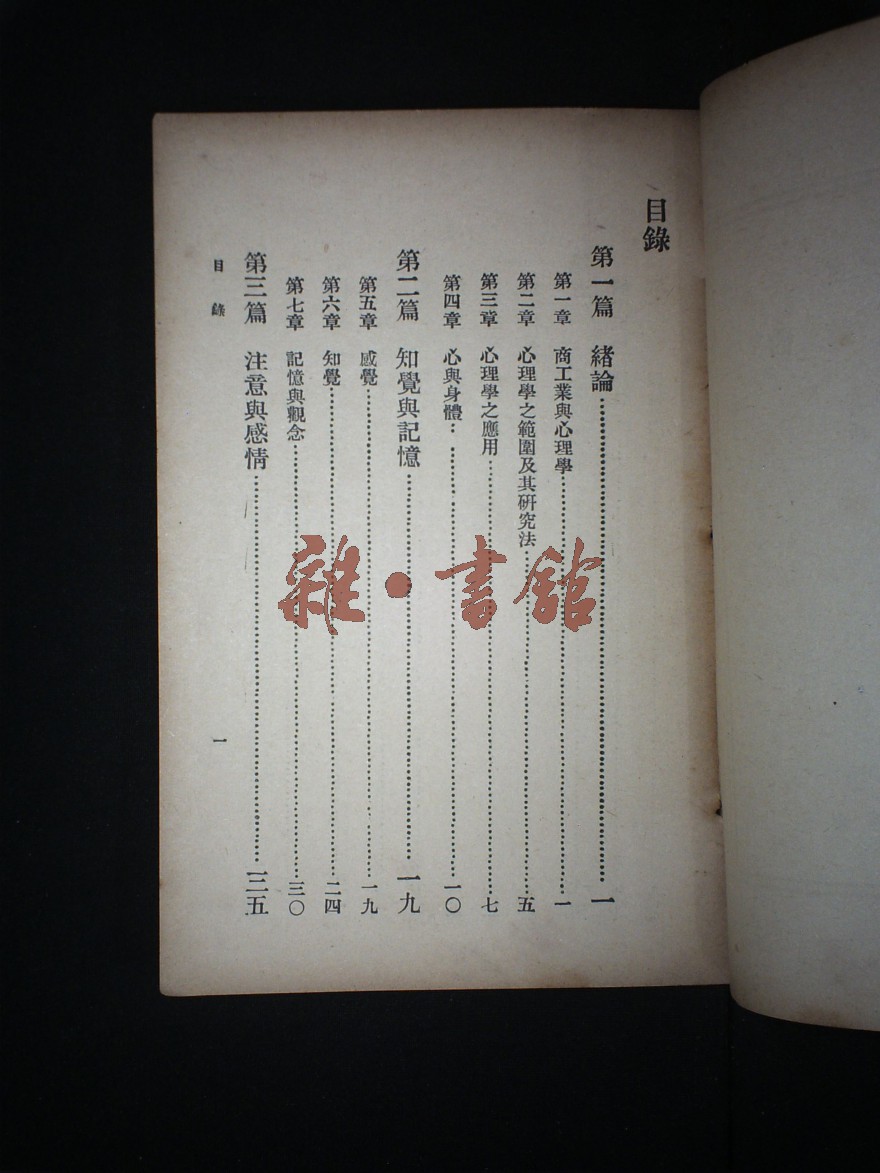 目錄
第一篇 緒論……一
第一章 商工業與心理學……一
第二章 心理學之範圍及其研究法……五
第三章 心理學之應用……七
第四章 心與身體……一〇
第二篇 知覺與記憶……一九
第五章 感覺……一九
第六章 知覺……二四
第七章 記憶與觀念……三〇
第三篇 注意與感情……三五
目錄 一
雜·書館